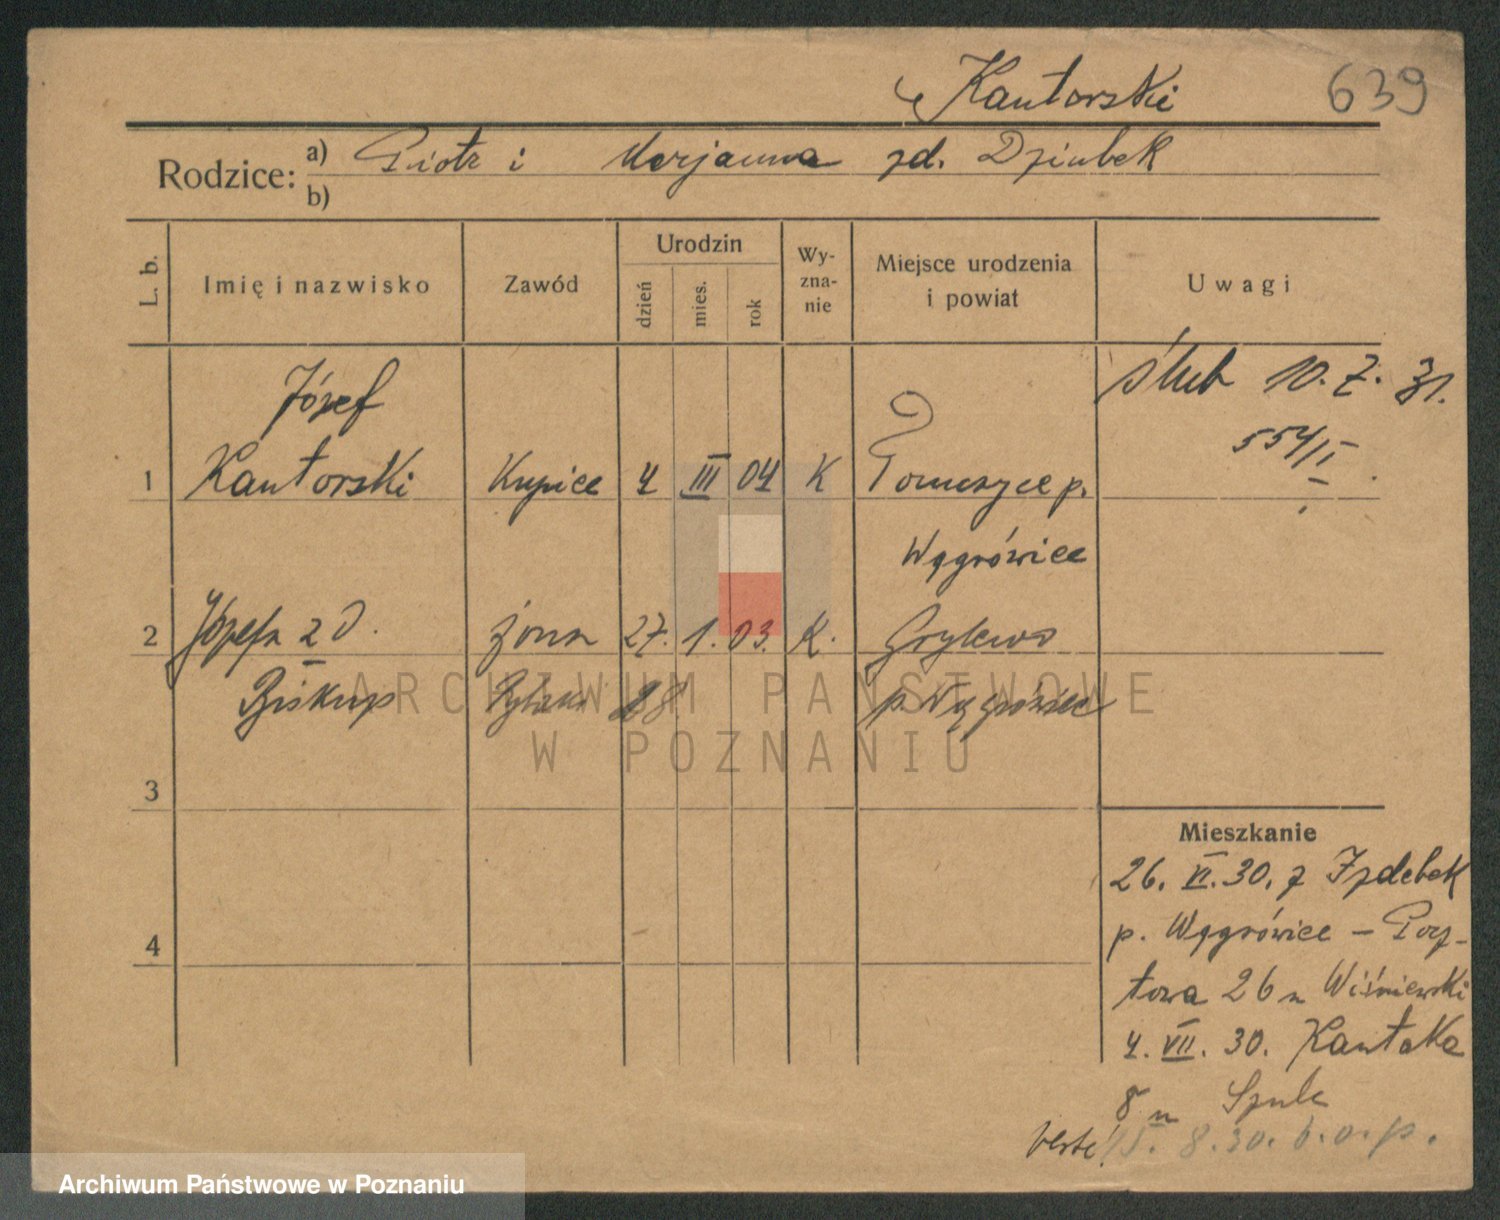 Kantorski 639
Rodzice: a) Piotr i Marjanna zd. Dziubek
b)
L. b. Imię i nazwisko Zawód Urodzin dzień mies. rok Wy-zna-nie Miejsce urodzenia i powiat Uwagi
Józef
ślub 10. 7. 31.
554/I
1 Kantorski Kupiec 4 III 04 K Tomczyce p.
Wągrówiec
2 Józefa z d. żona 27. 1. 03. K. Grylewo
Biskup p. Wągrówiec
3
4
Mieszkanie
26. VI. 30. z Izdebek
p. Wągrówiec – Pocz-
towa 26 u Wiśniewski
4. VII. 30. Kantaka
8 u Szulc
verte! 15. 8. 30. b. o. p.
ARCHIWUM PAŃSTWOWE
W POZNANIU
Archiwum Państwowe w Poznaniu